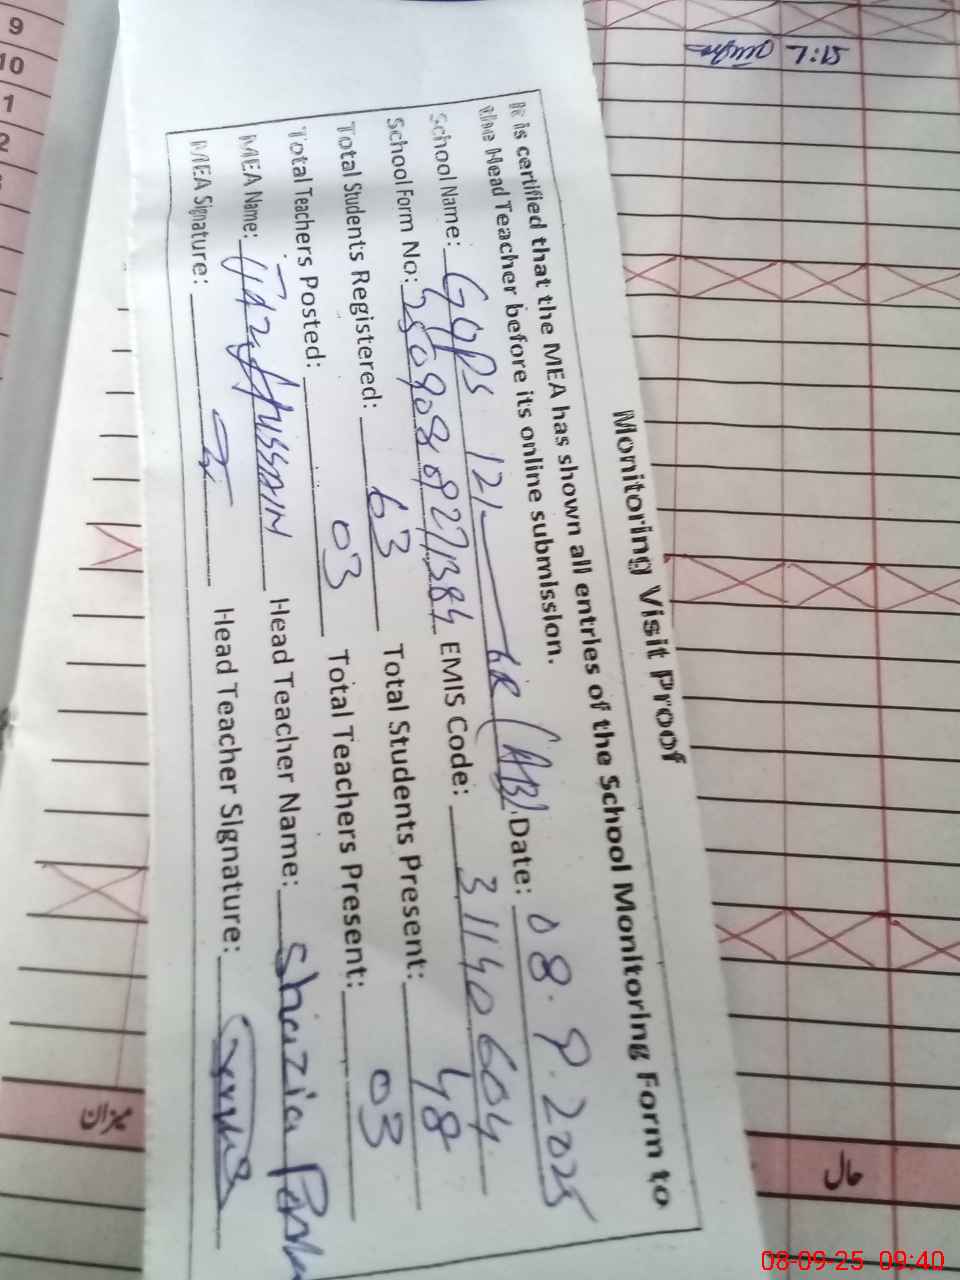 Monitoring Visit Proof
It is certified that the MEA has shown all entries of the School Monitoring Form to
the Head Teacher before its online submission.
School Name: GGPS 121 6R (AB) Date: 08.9.2025
School Form No: EMIS Code: 31140604
Total Students Registered: 63 Total Students Present: 48
Total Teachers Posted: 03 Total Teachers Present: 03
MEA Name: Hussain Head Teacher Name: Shazia
MEA Signature: Head Teacher Signature:
9
10
1
2
7:15
میزان
حال
08-09-25 09:40